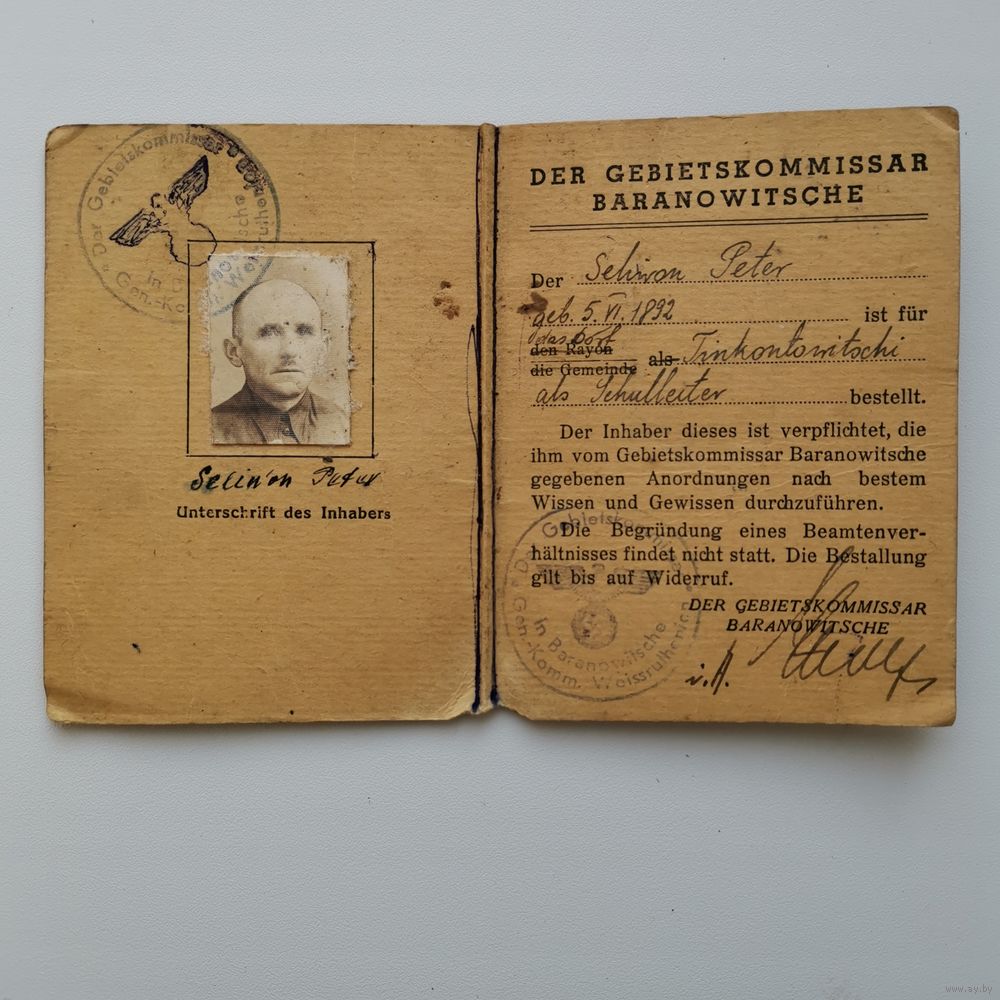 Der Gebietskommissar
in
Gen.-Ko
Seliwon Peter
Unterschrift des Inhabers
DER GEBIETSKOMMISSAR
BARANOWITSCHE
Der Seliwon Peter
geb. 5. VI. 1892 ist für
das Dorf
den Rayon
die Gemeinde als Tinkontowitschi
als Schulleiter bestellt.
Der Inhaber dieses ist verpflichtet, die
ihm vom Gebietskommissar Baranowitsche
gegebenen Anordnungen nach bestem
Wissen und Gewissen durchzuführen.
Die Begründung eines Beamtenver-
hältnisses findet nicht statt. Die Bestallung
gilt bis auf Widerruf.
DER GEBIETSKOMMISSAR
BARANOWITSCHE
i. A.
in Baranowitsche
Gen.-Komm. Weissruthenien
www.ay.by